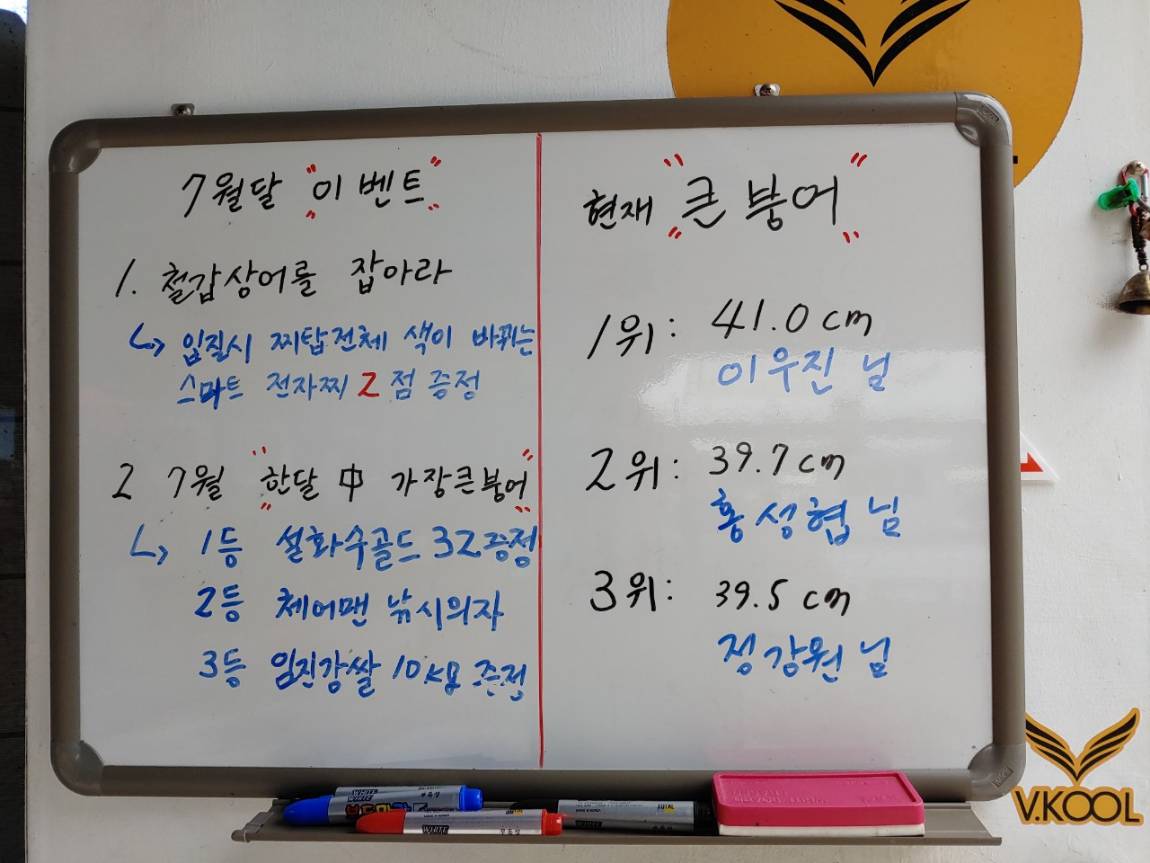 7월달 "이벤트"
1. 철갑상어를 잡아라
↳ 입질시 찌탑전체 색이 바뀌는
스마트 전자찌 2점 증정
2 7월 "한달 中 가장큰붕어"
↳ 1등 설화수골드 32 증정
2등 체어맨 낚시의자
3등 임진강쌀 10kg 증정
현재 "큰붕어"
1위: 41.0cm
이우진 님
2위: 39.7cm
홍성협 님
3위: 39.5cm
정강원 님
WHITE
WHITE
WHITE
V.KOOL